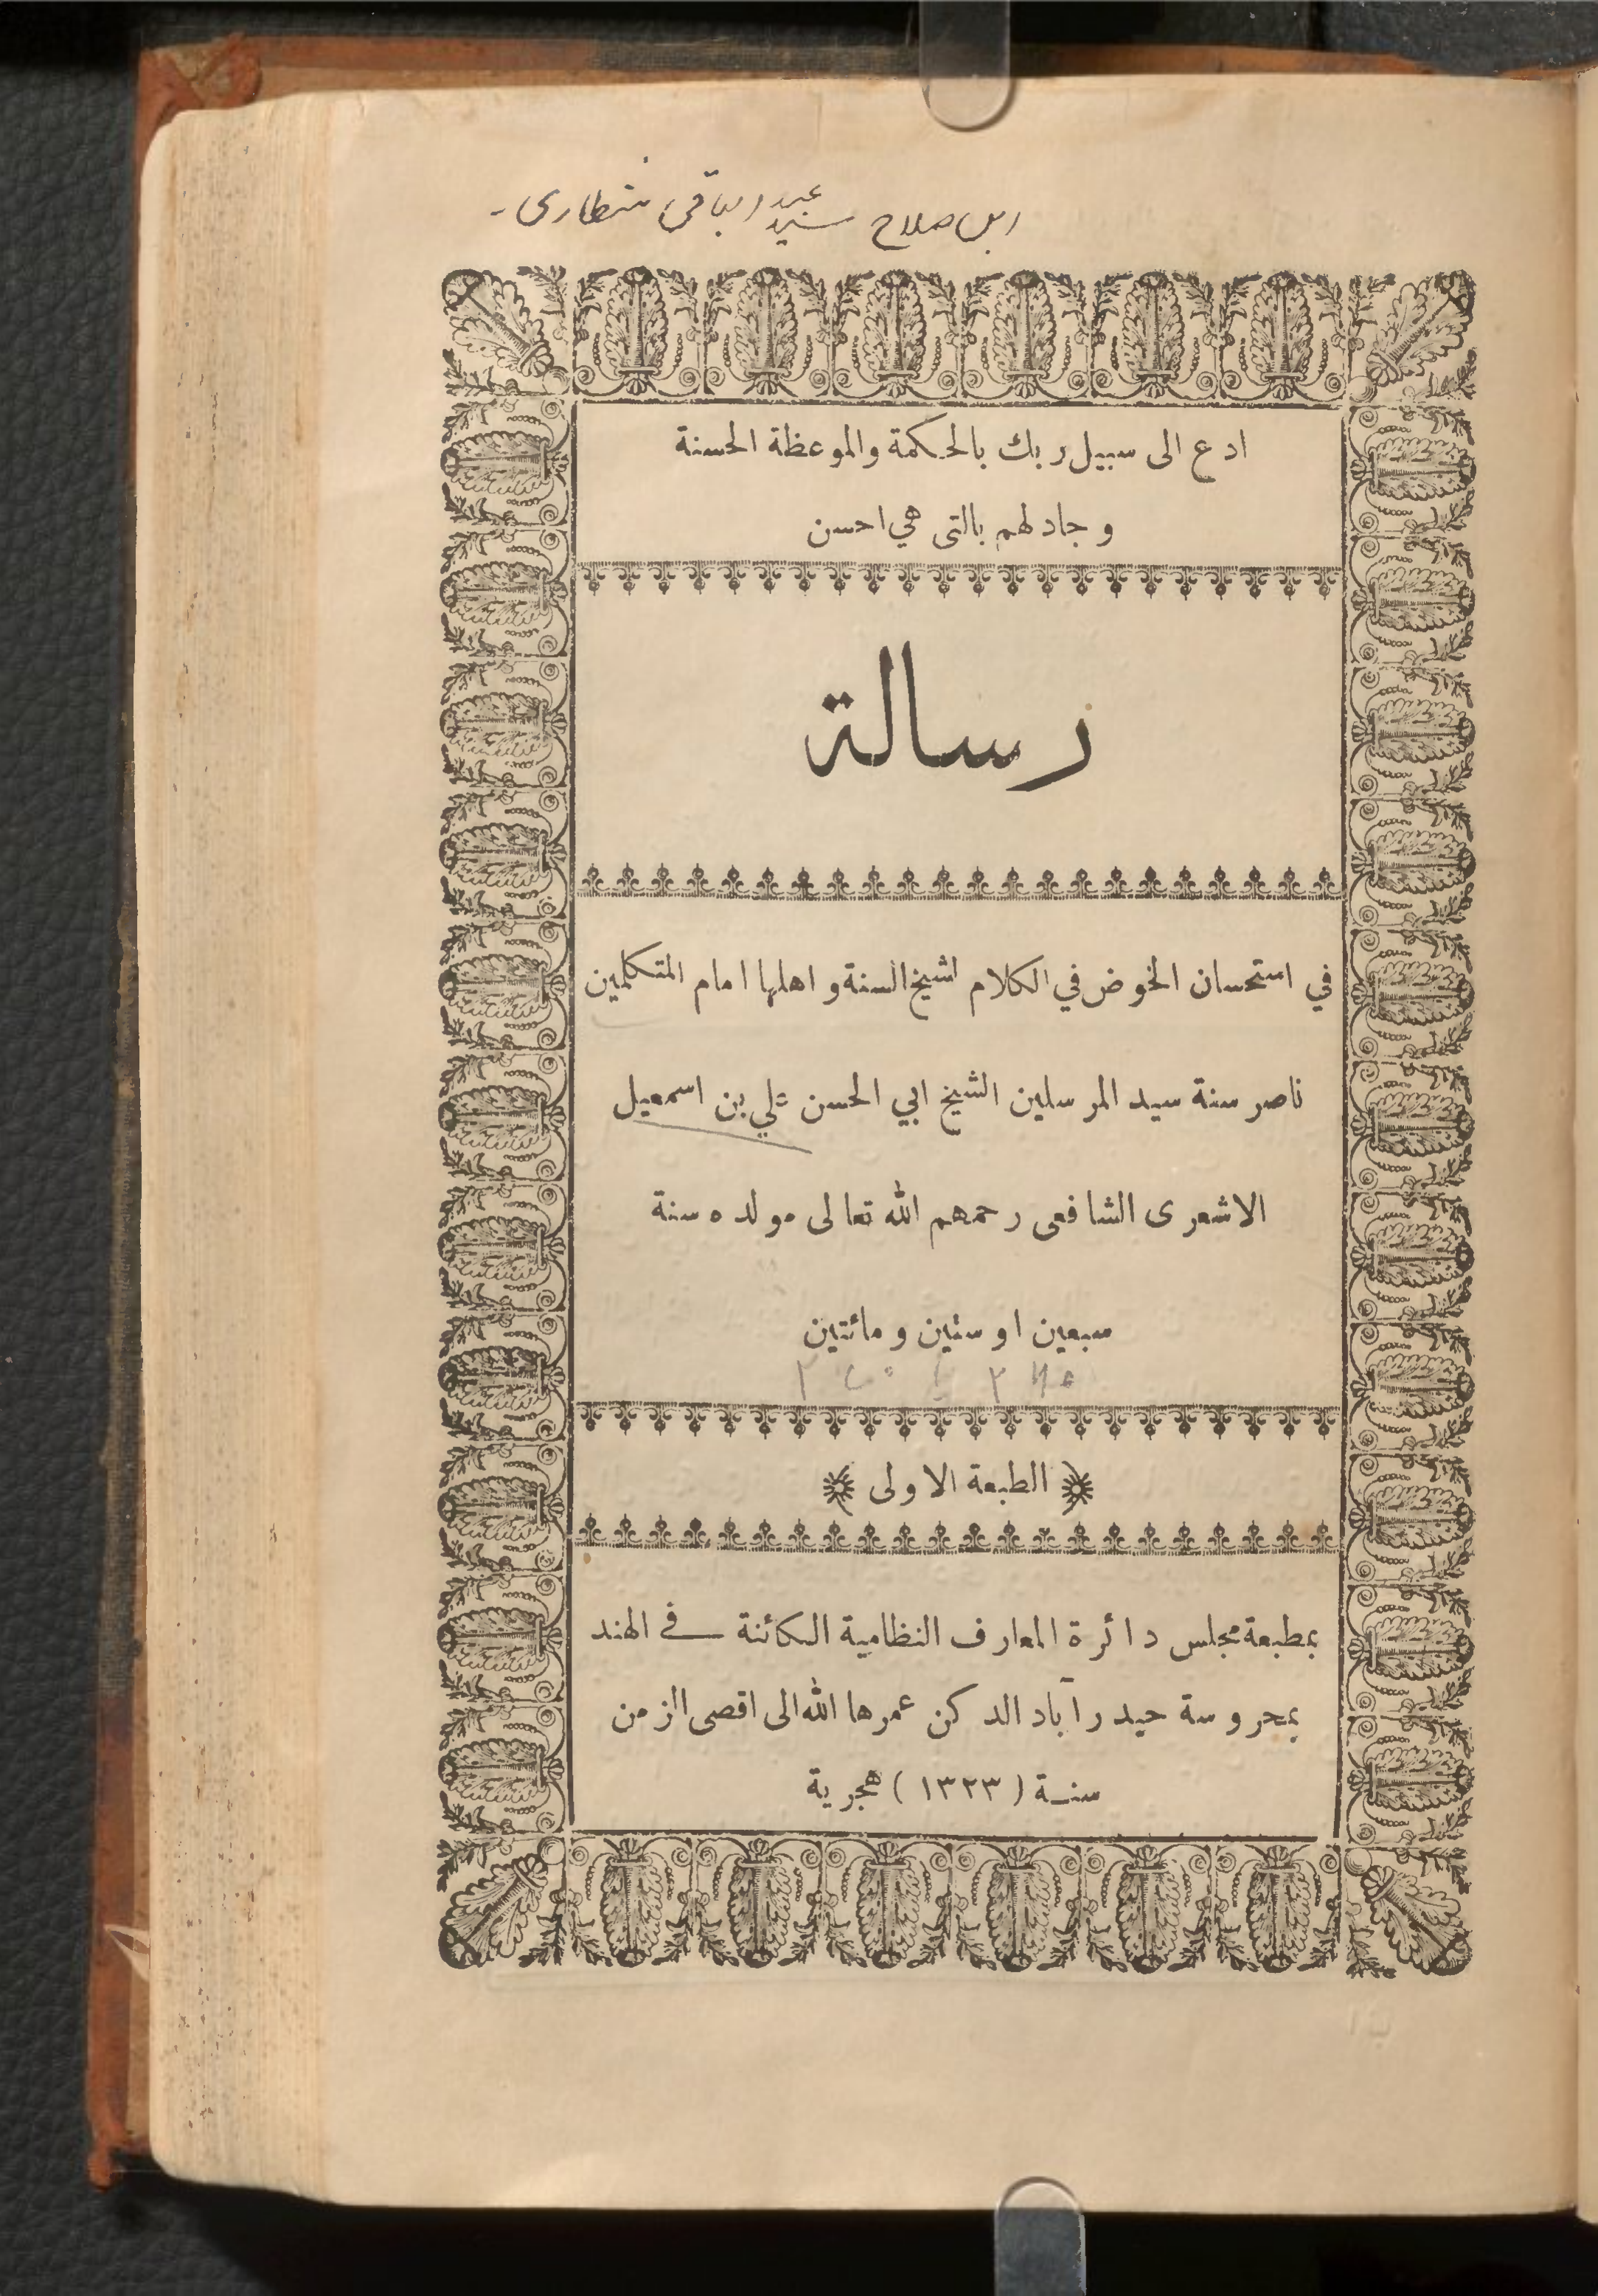 ابن صلاح سيد عبد الباقى شطارى -
ادع الى سبيل ربك بالحكمة والموعظة الحسنة
وجادلهم بالتى هي احسن
رسالة
في استحسان الخوض في الكلام لشيخ السنة و اهلها امام المتكلمين
ناصر سنة سيد المرسلين الشيخ ابي الحسن علي بن اسمعيل
الاشعرى الشافعى رحمهم الله تعالى مولده سنة
سبعين او ستين و مائتين
الطبعة الاولى
بمطبعة مجلس دائرة المعارف النظامية الكائنة في الهند
بمحروسة حيدرآباد الدكن عمرها الله الى اقصى الزمن
سنة (١٣٢٣) هجرية